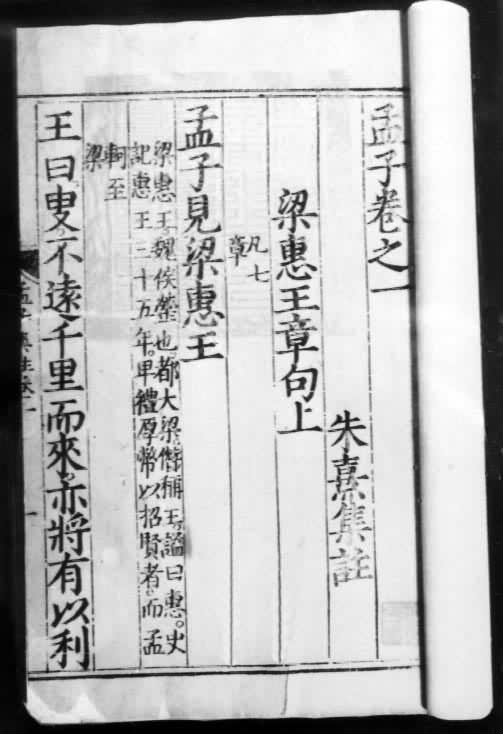 孟子卷之一
朱熹集註
梁惠王章句上
凡七
章
孟子見梁惠王
梁惠王魏侯罃也。都大梁僭稱王。謚曰惠。史
記惠王三十五年。卑禮厚幣以招賢者。而孟
軻至
梁
王曰叟不遠千里而來亦將有以利